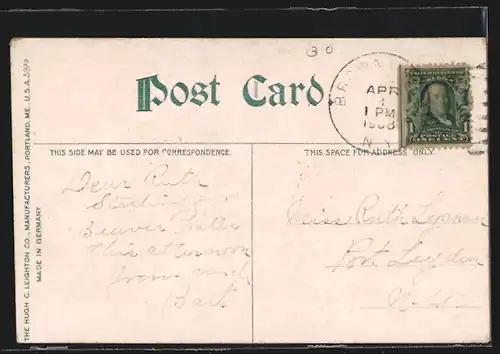 30
Post Card
BR
APR
1 PM
1908
N.Y.
1
THIS SIDE MAY BE USED FOR CORRESPONDENCE.
THIS SPACE FOR ADDRESS ONLY.
Dear Ruth
Starting for
Beaver Falls
this afternoon
from
Miss Ruth Lyman
Port Leyden
N.Y.
THE HUGH C. LEIGHTON CO., MANUFACTURERS, PORTLAND, ME., U.S.A.
MADE IN GERMANY.